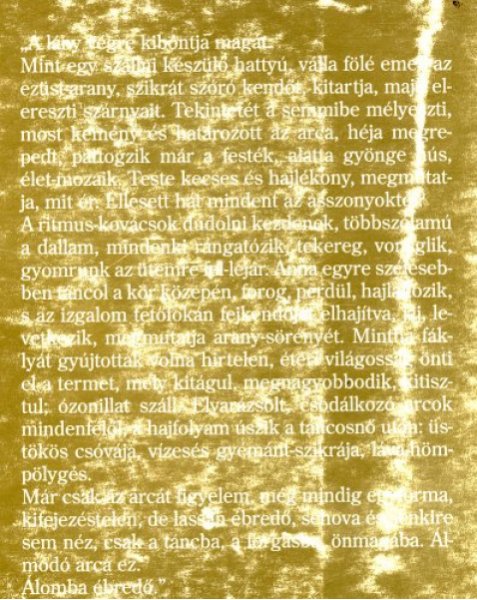 „A lány végre kibontja magát.
Mint egy szállni készülő hattyú, válla fölé emeli az
ezüst-arany, szikrát szóró kendőt, kitartja, majd el-
ereszti szárnyait. Tekintetét a semmibe mélyeszti,
most kemény és határozott az arca, héja megre-
pedt, pattogzik már a festék, alatta gyönge hús,
élet-mozaik. Teste kecses és hajlékony, megmutat-
ja, mit ér. Ellesett hát mindent az asszonyoktól.
A ritmus-kovácsok dúdolni kezdenek, többszólamú
a dallam, mindenki rángatózik, tekereg, vonaglik,
gyomrunk az ütemre fel-lejár. Anna egyre szélesebb-
ben táncol a kör közepén, forog, perdül, hajladozik,
s az izgalom tetőfokán fejkendőjét elhajítva, haj, le-
vetkezik, megmutatja arany-sörényét. Mintha fák-
lyát gyújtottak volna hirtelen, éteri világosság önti
el a termet, mely kitágul, megnagyobbodik, kitisz-
tul; ózonillat száll. Elvarázsolt, csodálkozó arcok
mindenfelől, a hajfolyam úszik a táncosnő után: üs-
tökös csóvája, vízesés gyémánt-szikrája, láva-höm-
pölygés.
Már csak az arcát figyelem, még mindig egyforma,
kifejezéstelen, de lassan ébredő, sehova és senkire
sem néz, csak a táncba, a forgásba, önmagába. Ál-
modó arca ez.
Álomba ébredő.”